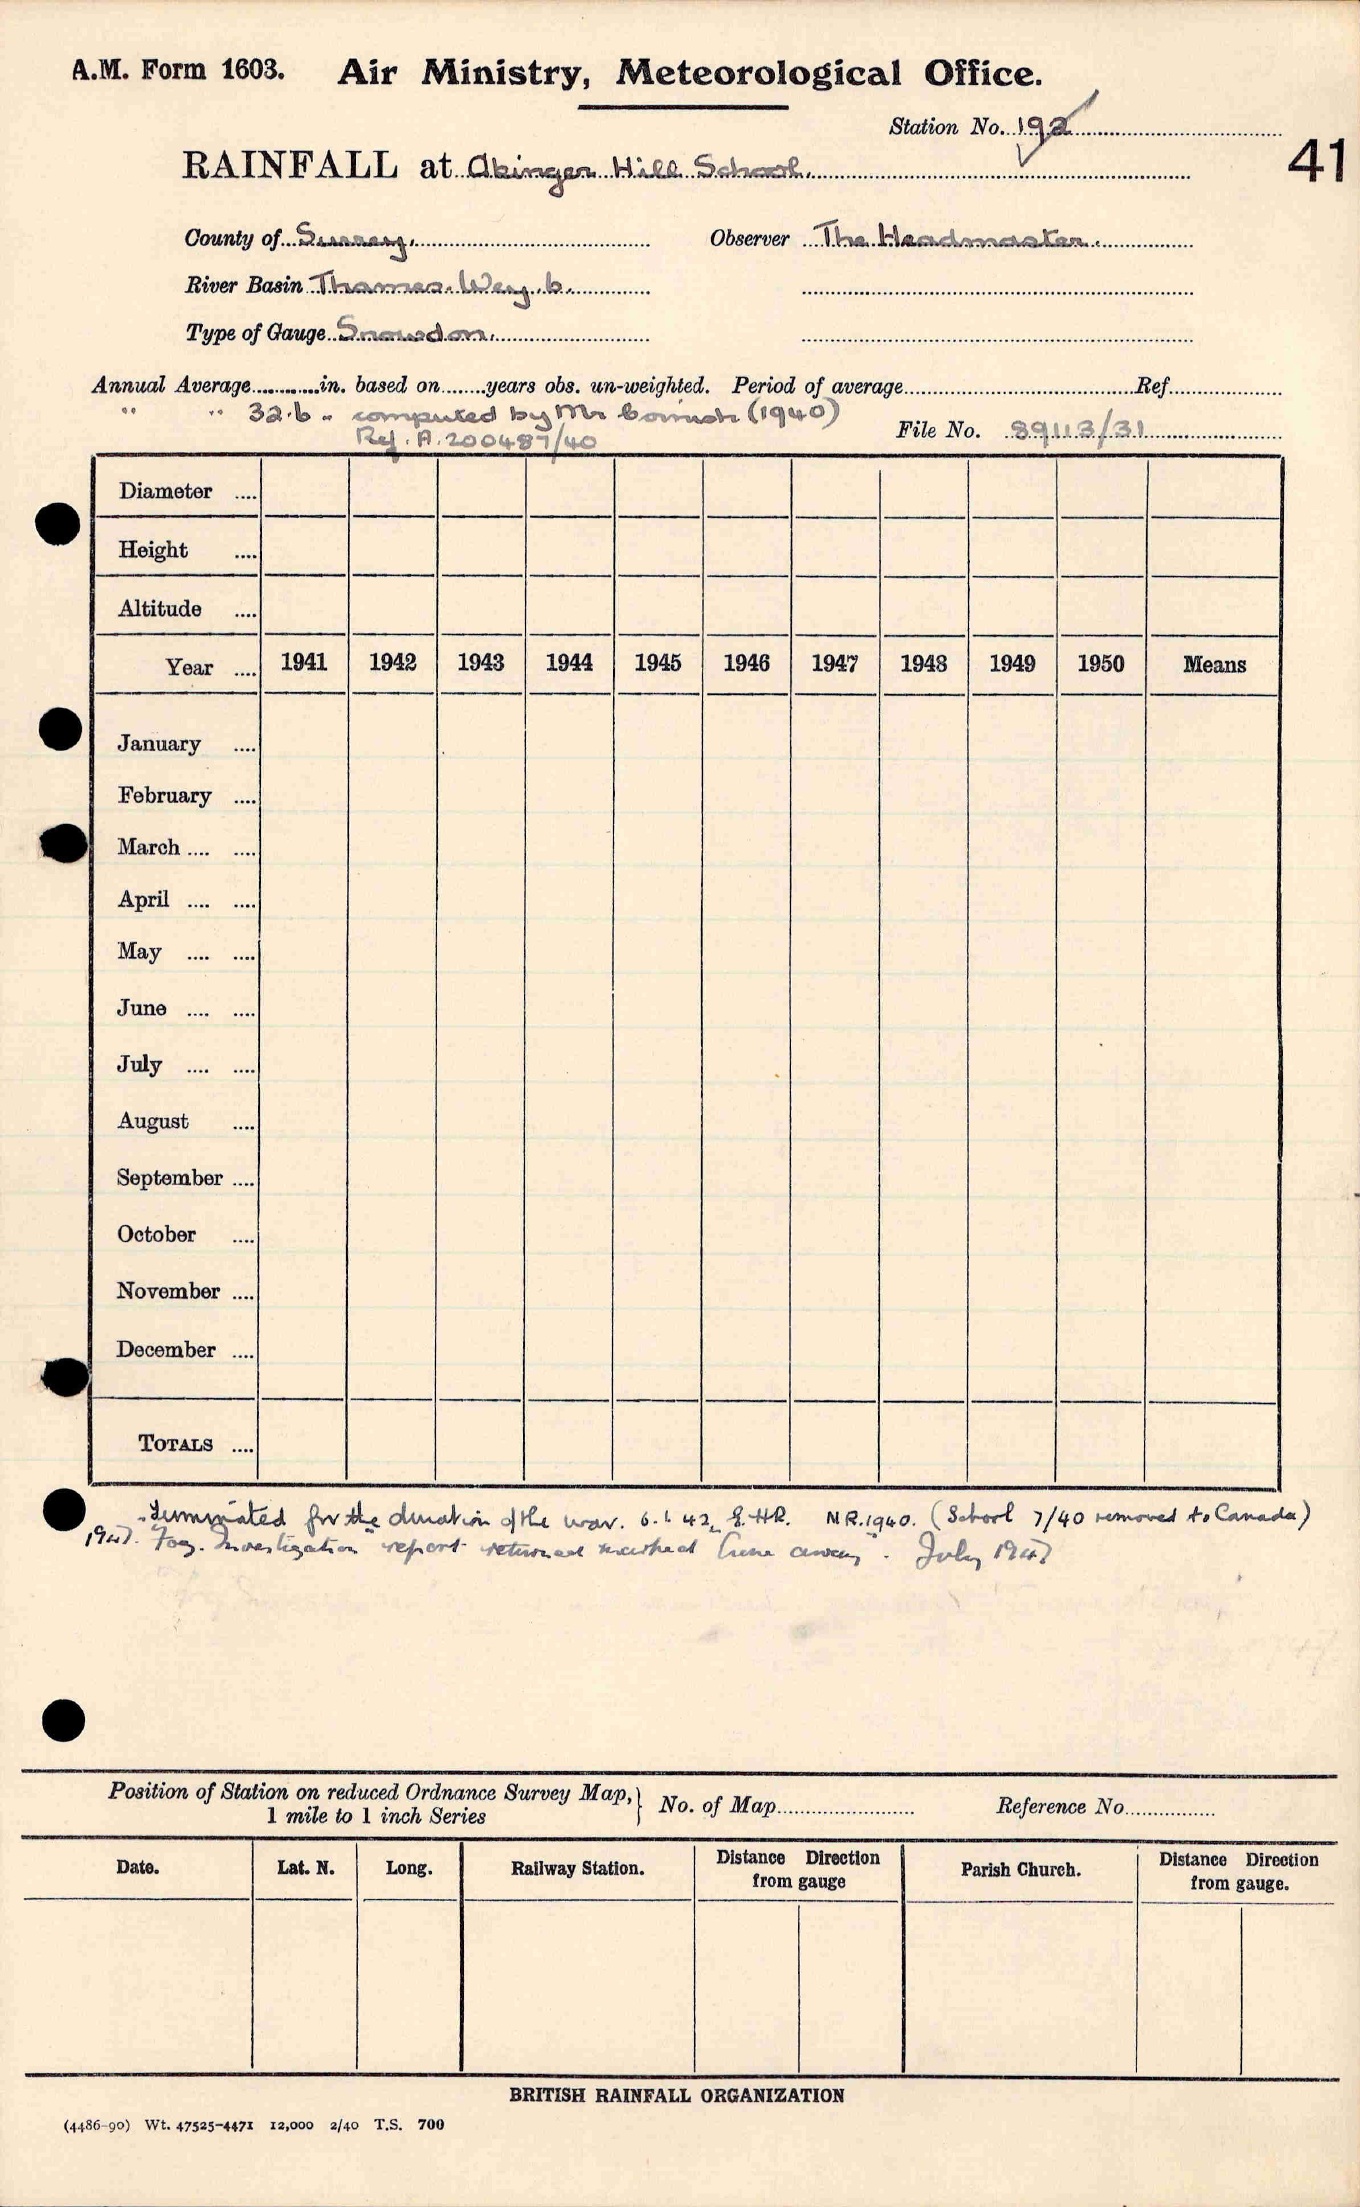 A.M. Form 1603. Air Ministry, Meteorological Office.
Station No. 192
41
RAINFALL at Abinger Hill School.
County of Surrey. Observer The Headmaster.
River Basin Thames. Wey. b.
Type of Gauge Snowdon.
Annual Average............in. based on.......years obs. un-weighted. Period of average............Ref............
" " 32.6 " computed by Mr Cornish (1940)
Ref. A.200487/40 File No. 89113/31
Diameter ....
Height ....
Altitude ....
Year .... 1941 1942 1943 1944 1945 1946 1947 1948 1949 1950 Means
January ....
February ....
March .... ....
April .... ....
May .... ....
June .... ....
July .... ....
August ....
September ....
October ....
November ....
December ....
TOTALS ....
"Terminated for the duration of the war. 6.1.42" E.HR. NR.1940. (School 7/40 removed to Canada)
1947. Fog. Investigation "report returned marked 'Gone away'. July 1947
Position of Station on reduced Ordnance Survey Map,
1 mile to 1 inch Series } No. of Map............ Reference No............
Date. Lat. N. Long. Railway Station. Distance Direction from gauge Parish Church. Distance Direction from gauge.
BRITISH RAINFALL ORGANIZATION
(4486-90) Wt. 47525-4471 12,000 2/40 T.S. 700